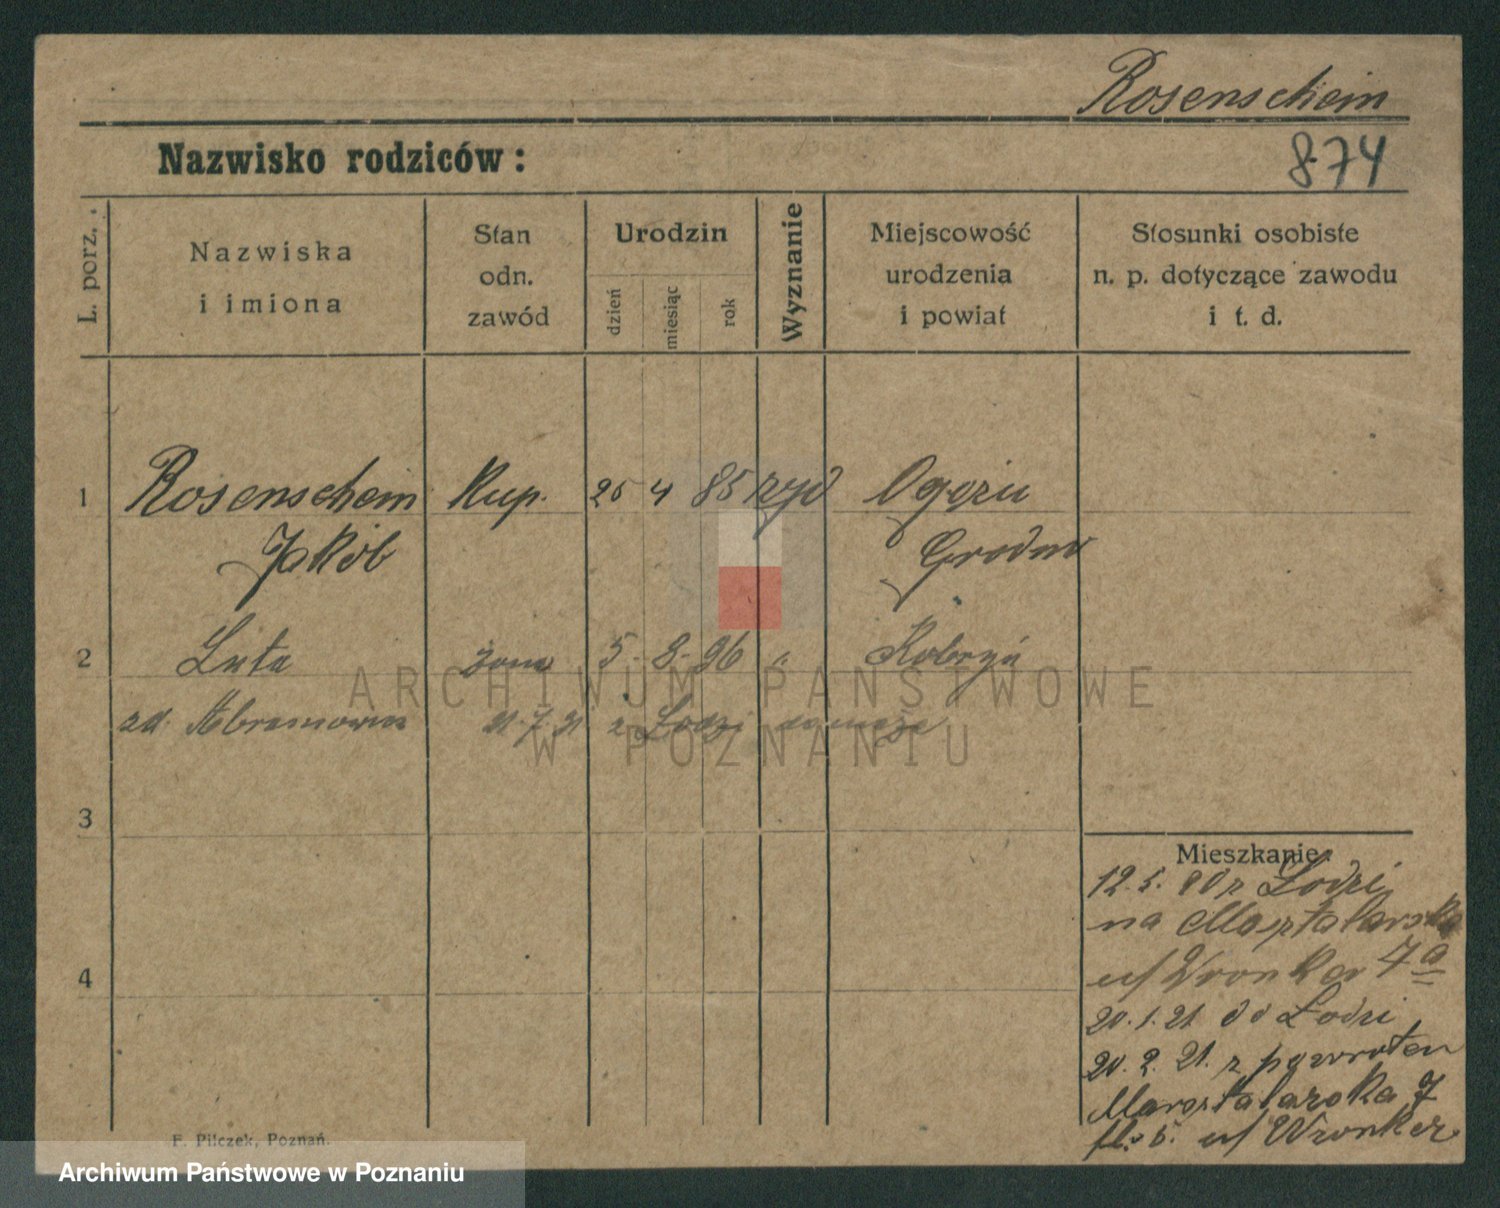 Rosenschein
Nazwisko rodziców:
874
L. porz.
Nazwiska
i imiona
Stan
odn.
zawód
Urodzin
dzień
miesiąc
rok
Wyznanie
Miejscowość
urodzenia
i powiat
Stosunki osobiste
n. p. dotyczące zawodu
i t. d.
1 Rosenschein Kup. 25 4 85 żyd
Jakób Grodno
2 Luta żona 5. 8. 96 " Kobryń
zd. Abramowicz 21.7.21 z Łodzi do męża
3
4
Mieszkanie:
12.5. 20 z Łodzi
na Masztalarska
u/ Wronker 7a
20.1.21 do Łodzi
20.2.21. z powrotem
Masztalarska 7
u/ Wronker
F. Pilczek, Poznań.
ARCHIWUM PAŃSTWOWE
W POZNANIU
Archiwum Państwowe w Poznaniu